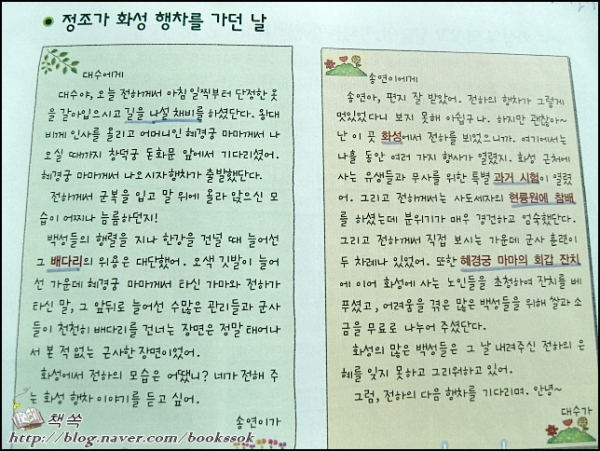 정조가 화성 행차를 가던 날
대수에게
대수야, 오늘 전하께서 아침 일찍부터 단정한 옷
을 갈아입으시고 길을 나설 채비를 하셨단다. 왕대
비께 인사를 올리고 어머니인 혜경궁 마마께서 나
오실 때까지 창덕궁 돈화문 앞에서 기다리셨어.
혜경궁 마마께서 나오시자 행차가 출발했단다.
전하께서 군복을 입고 말 위에 올라 앉으신 모
습이 어찌나 늠름하던지!
백성들의 행렬을 지나 한강을 건널 때 늘어선
그 배다리의 위용은 대단했어. 오색 깃발이 늘어
선 가운데 혜경궁 마마께서 타신 가마와 전하가
타신 말, 그 앞뒤로 늘어선 수많은 관리들과 군사
들이 천천히 배다리를 건너는 장면은 정말 태어나
서 본 적 없는 근사한 장면이었어.
화성에서 전하의 모습은 어땠니? 네가 전해 주
는 화성 행차 이야기를 듣고 싶어.
송연이가
송연이에게
송연아, 편지 잘 받았어. 전하의 행차가 그렇게
멋있었다니 보지 못해 아쉽구나. 하지만 괜찮아~
난 이 곳 화성에서 전하를 뵈었으니까. 여기에서는
나흘 동안 여러 가지 행사가 열렸지. 화성 근처에
사는 유생들과 무사를 위한 특별 과거 시험이 열렸
어. 그리고 전하께서는 사도세자의 현륭원에 참배
를 하셨는데 분위기가 매우 경건하고 엄숙했단다.
그리고 전하께서 직접 보시는 가운데 군사 훈련이
두 차례나 있었어. 또한 혜경궁 마마의 회갑 잔치
에 이어 화성에 사는 노인들을 초청하여 잔치를 베
푸셨고, 어려움을 겪은 많은 백성들을 위해 쌀과 소
금을 무료로 나누어 주셨단다.
화성의 많은 백성들은 그 날 내려주신 전하의 은
혜를 잊지 못하고 그리워하고 있어.
그럼, 전하의 다음 행차를 기다리며. 안녕~
대수가
책쏙
http://blog.naver.com/bookssok